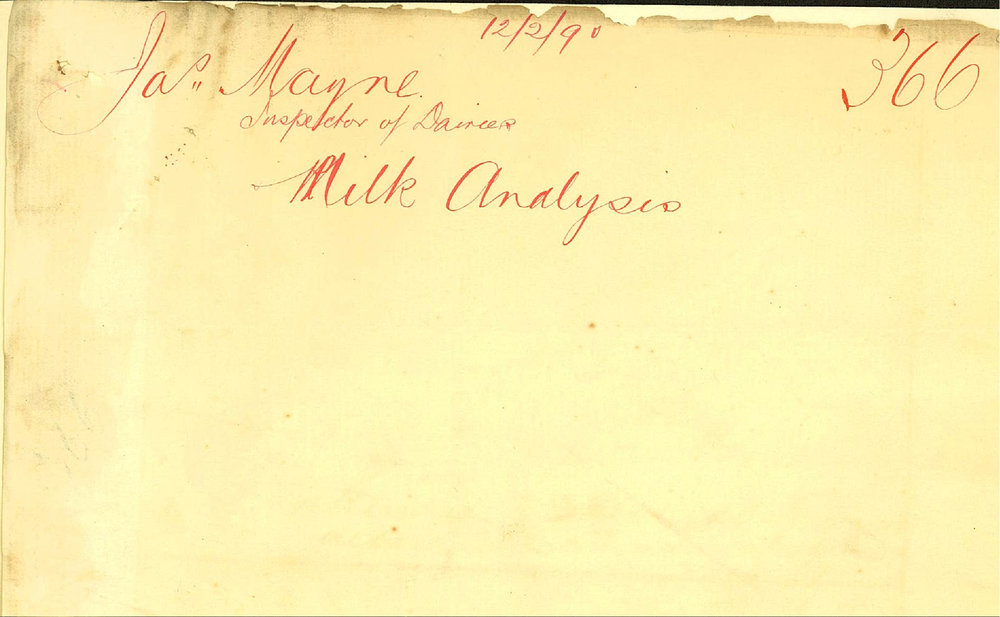 12/2/90
366
Jas. Mayne.
Inspector of Dairies
Milk Analysis